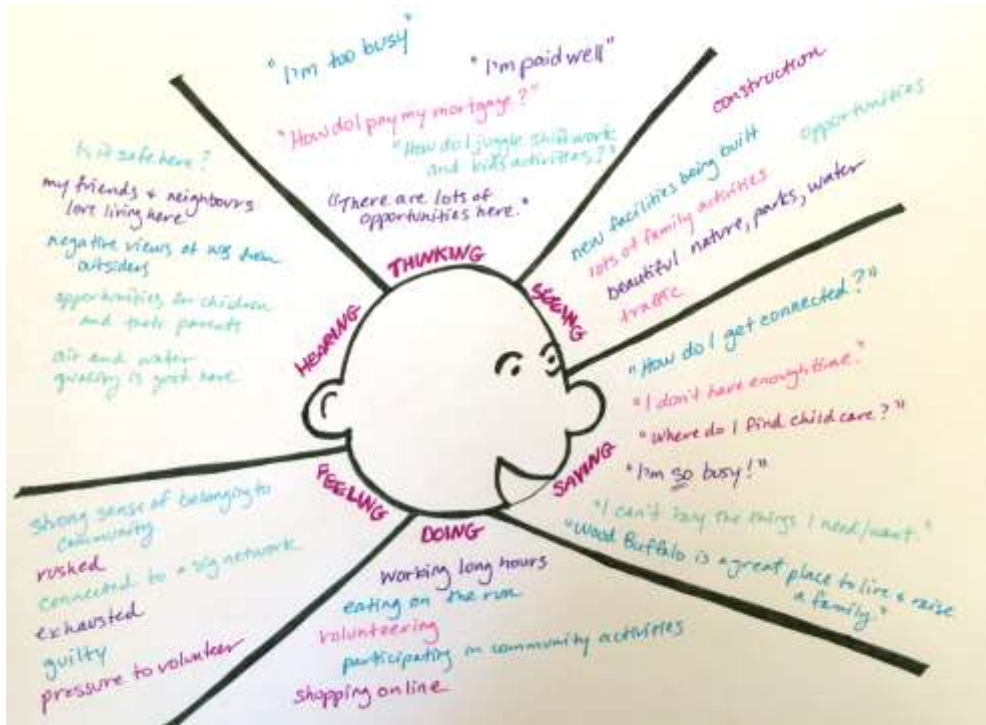 "I'm too busy"
"I'm paid well"
"How do I pay my mortgage?"
"How do I juggle shiftwork
and kids activities?"
"There are lots of
opportunities here."
THINKING
construction
opportunities
new facilities being built
lots of family activities
beautiful nature, parks, water
traffic
SEEING
"How do I get connected?"
"I don't have enough time."
"Where do I find childcare?"
"I'm so busy!"
"I can't buy the things I need/want."
"Wood Buffalo is a great place to live & raise
a family."
SAYING
DOING
working long hours
eating on the run
volunteering
participating in community activities
shopping online
FEELING
strong sense of belonging to
community
rushed
connected to a network
exhausted
guilty
pressure to volunteer
HEARING
Is it safe here?
my friends & neighbours
love living here
negative views of from
outsiders
opportunities for children
and their parents
air and water
quality is good here